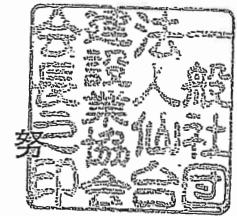 一般社団
法人仙台
建設業協会
会長之印
努